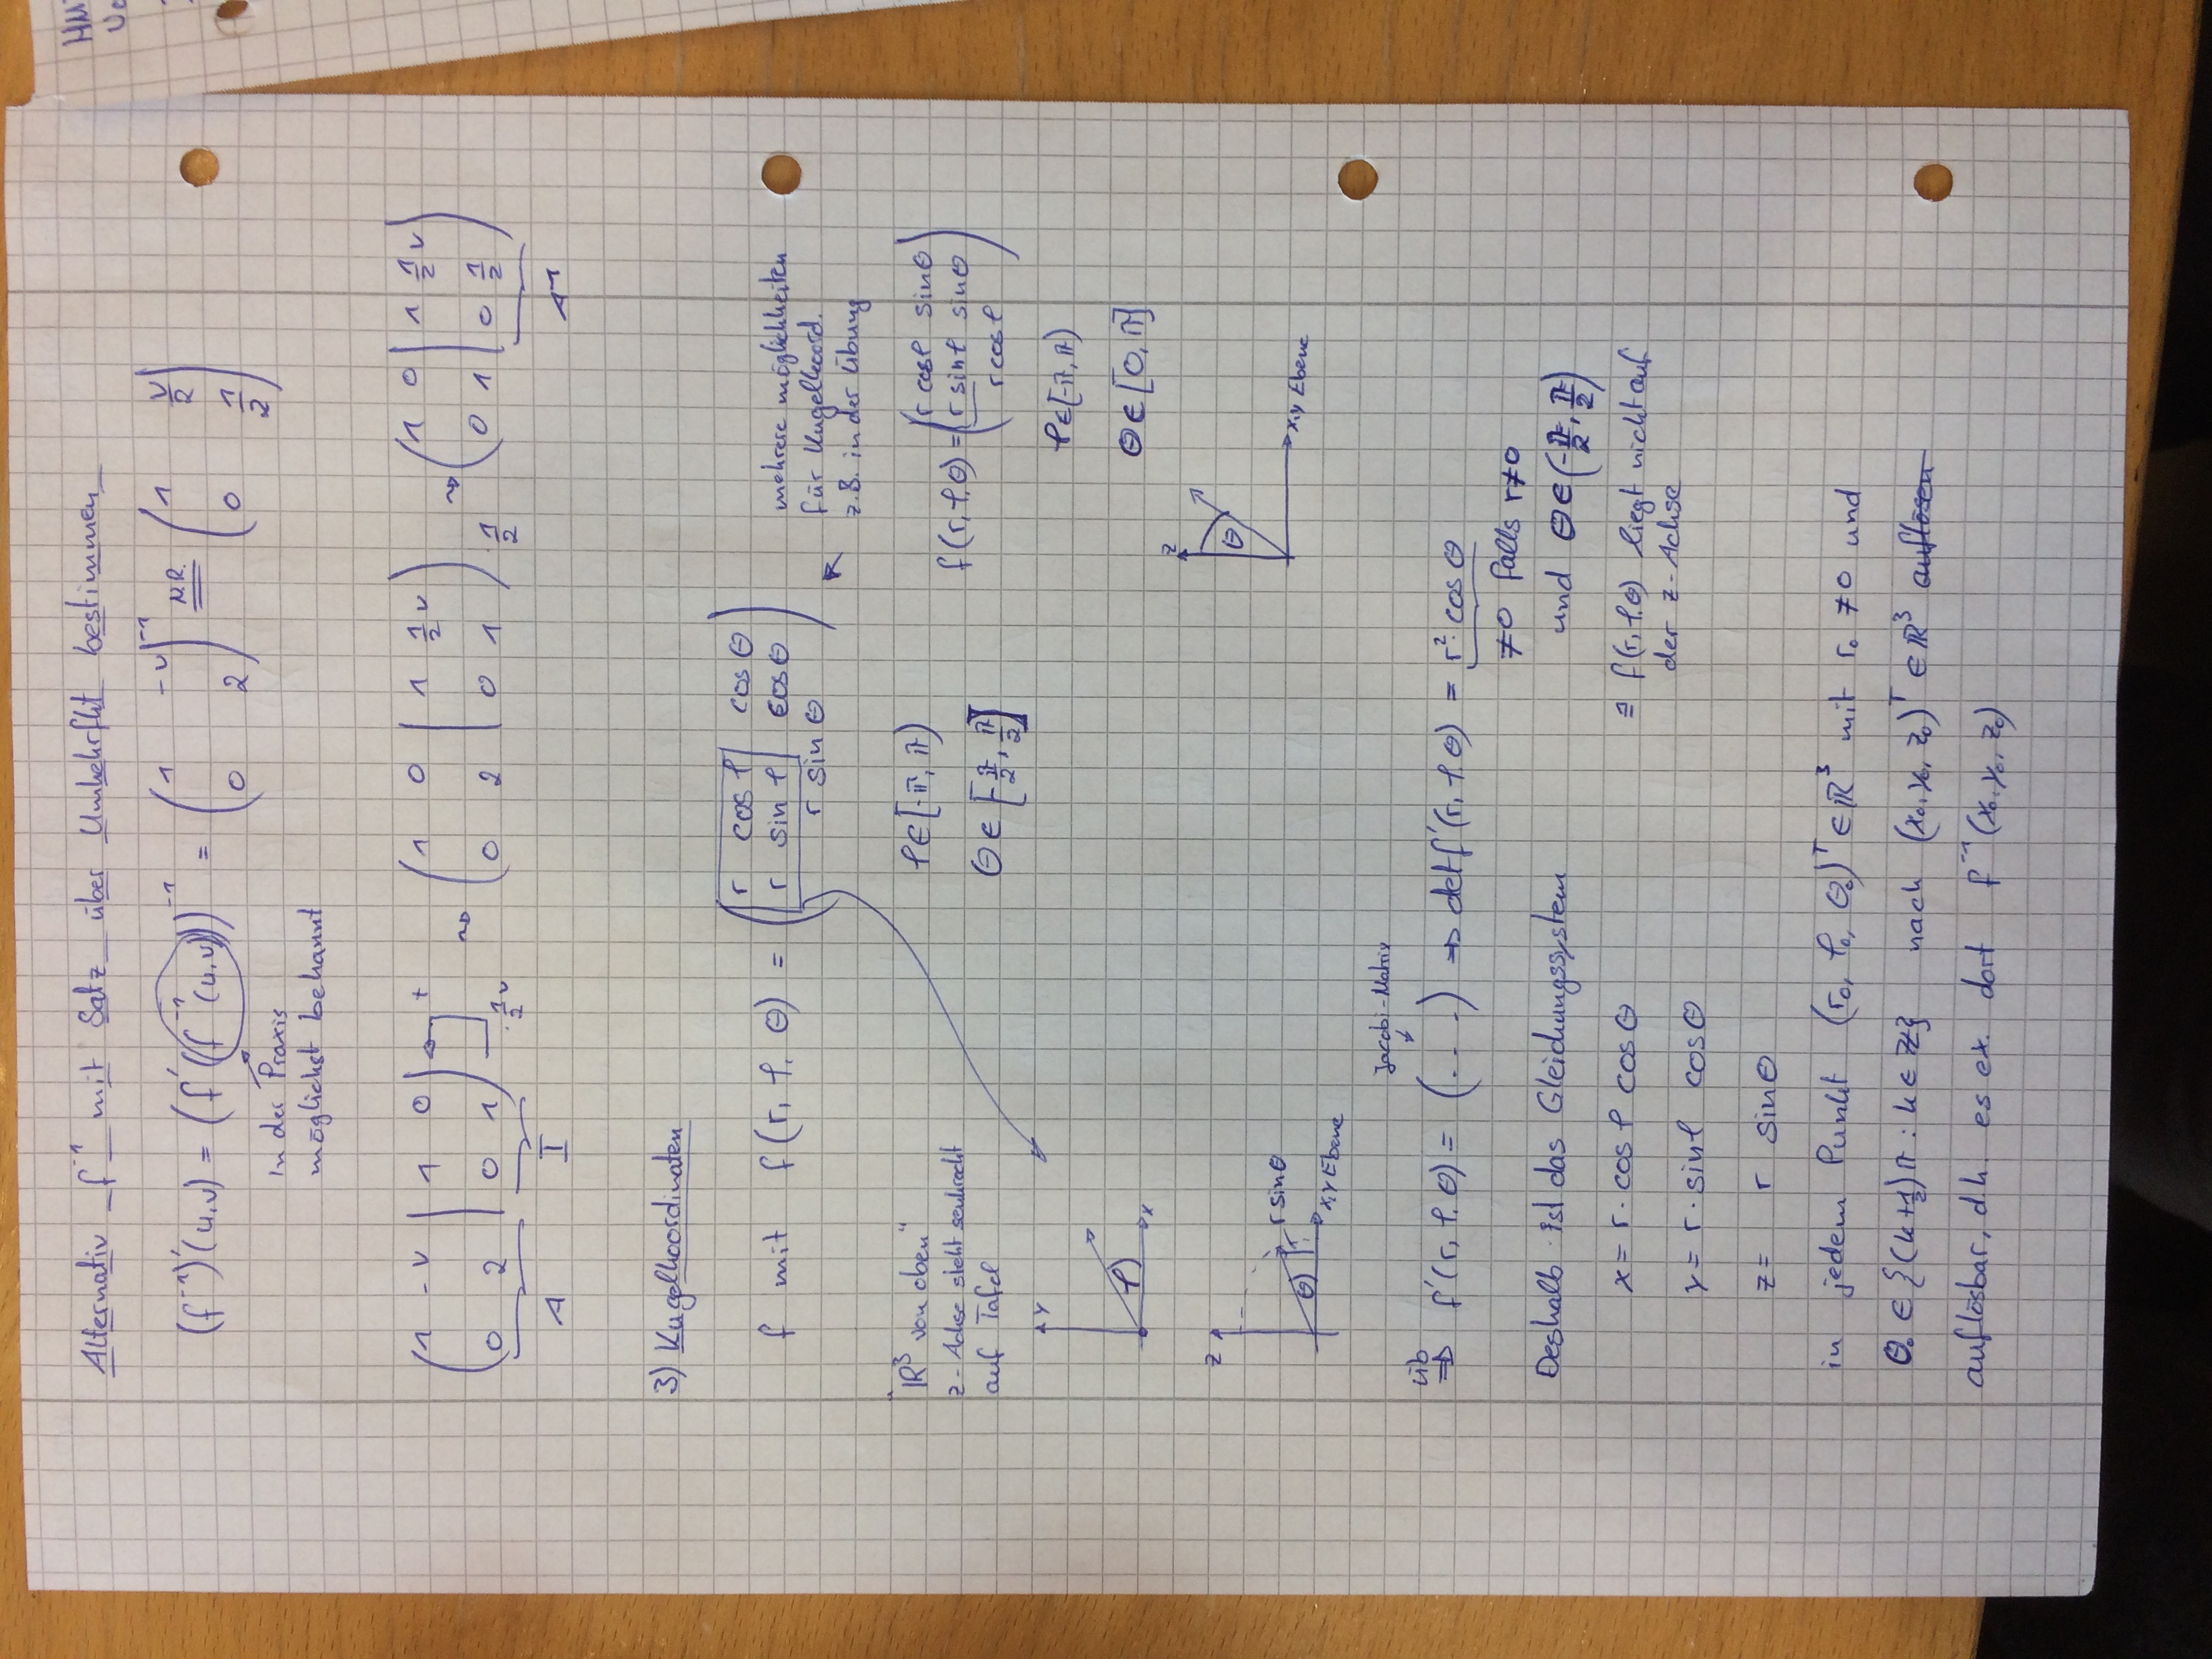 Alternativ f⁻¹ mit Satz über Umkehrfkt bestimmen
(f⁻¹)'(u,v) = (f'(f⁻¹(u,v)))⁻¹ = (1 -v; 0 2)⁻¹ =N.R. (1 v/2; 0 1/2)
in der Praxis
möglichst bekannt
(1 -v | 1 0; 0 2 | 0 1) + ·1/2 v ⇝ (1 0 | 1 1/2 v; 0 2 | 0 1) ·1/2 ⇝ (1 0 | 1 1/2 v; 0 1 | 0 1/2)
A I A⁻¹
3) Kugelkoordinaten
f mit f(r, φ, Θ) = (r cos φ cos Θ; r sin φ cos Θ; r sin Θ)
mehrere möglichkeiten
für Kugelkoord.
z.B. in der Übung
"ℝ³ von oben"
z-Achse steht senkrecht
auf Tafel
φ ∈ [-π, π)
Θ ∈ [-π/2, π/2]
f(r, φ, Θ) = (r cosφ sinΘ; r sinφ sinΘ; r cosφ)
φ ∈ [-π, π)
Θ ∈ [0, π]
Y
φ
x
z
Θ
r sin Θ
x,y Ebene
z
Θ
x,y Ebene
Jacobi-Matrix
üb
⇒ f'(r, φ, Θ) = (. . .) ⇒ det f'(r, φ, Θ) = r²·cos Θ
≠0 falls r≠0
und Θ ∈ (-π/2, π/2)
Deshalb ist das Gleichungssystem
x = r · cos φ cos Θ
≙ f(r, φ, Θ) liegt nicht auf
der z-Achse
y = r · sin φ cos Θ
z = r sin Θ
in jedem Punkt (r₀, φ₀, Θ₀)ᵀ ∈ ℝ³ mit r₀ ≠ 0 und
Θ₀ ∈ {(k+1/2)π : k ∈ ℤ} nach (x₀, y₀, z₀)ᵀ ∈ ℝ³ auflösen
auflösbar, d.h. es ex. dort f⁻¹(x₀, y₀, z₀)